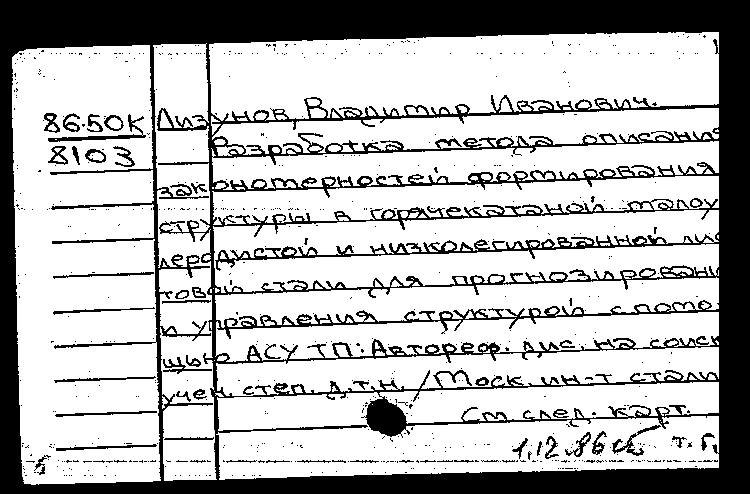 86-50К
8103
Лизунов, Владимир Иванович.
Разработка метода описания
закономерностей формирования
структуры в горячекатаной малоу
леродистой и низколегированной лис
товой стали для прогнозировани
и управления структурой с помо-
щью АСУ ТП: Автореф. дис. на соиск
учен. степ. д.т.н. / Моск. ин-т стали
См след. карт.
1.12.86
б